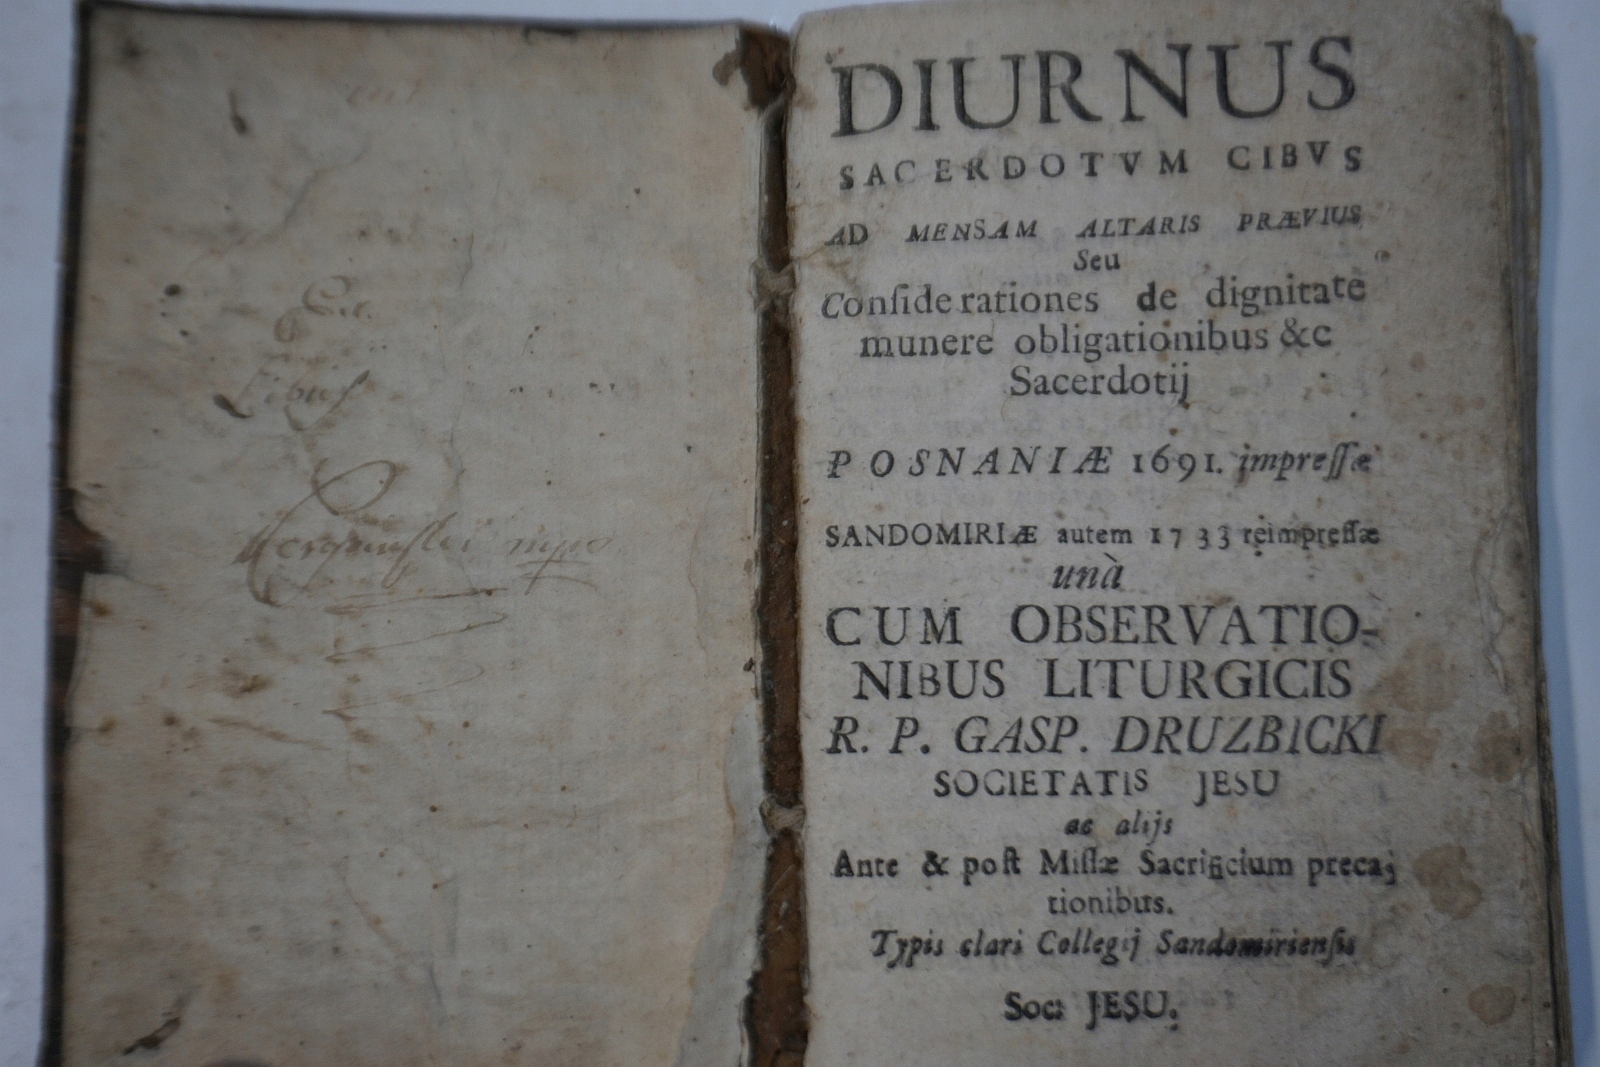 Ex
Libris
DIURNUS
SACERDOTVM CIBVS
AD MENSAM ALTARIS PRÆVIUS
Seu
Conſiderationes de dignitate
munere obligationibus &c
Sacerdotij
POSNANIÆ 1691. impreſſæ
SANDOMIRIÆ autem 1733 reimpreſſæ
unà
CUM OBSERVATIO-
NIBUS LITURGICIS
R. P. GASP. DRUZBICKI
SOCIETATIS JESU
ac alijs
Ante & poſt Miſſæ Sacrificium preca,
tionibus.
Typis clari Collegij Sandomirienſis
Soc: JESU.